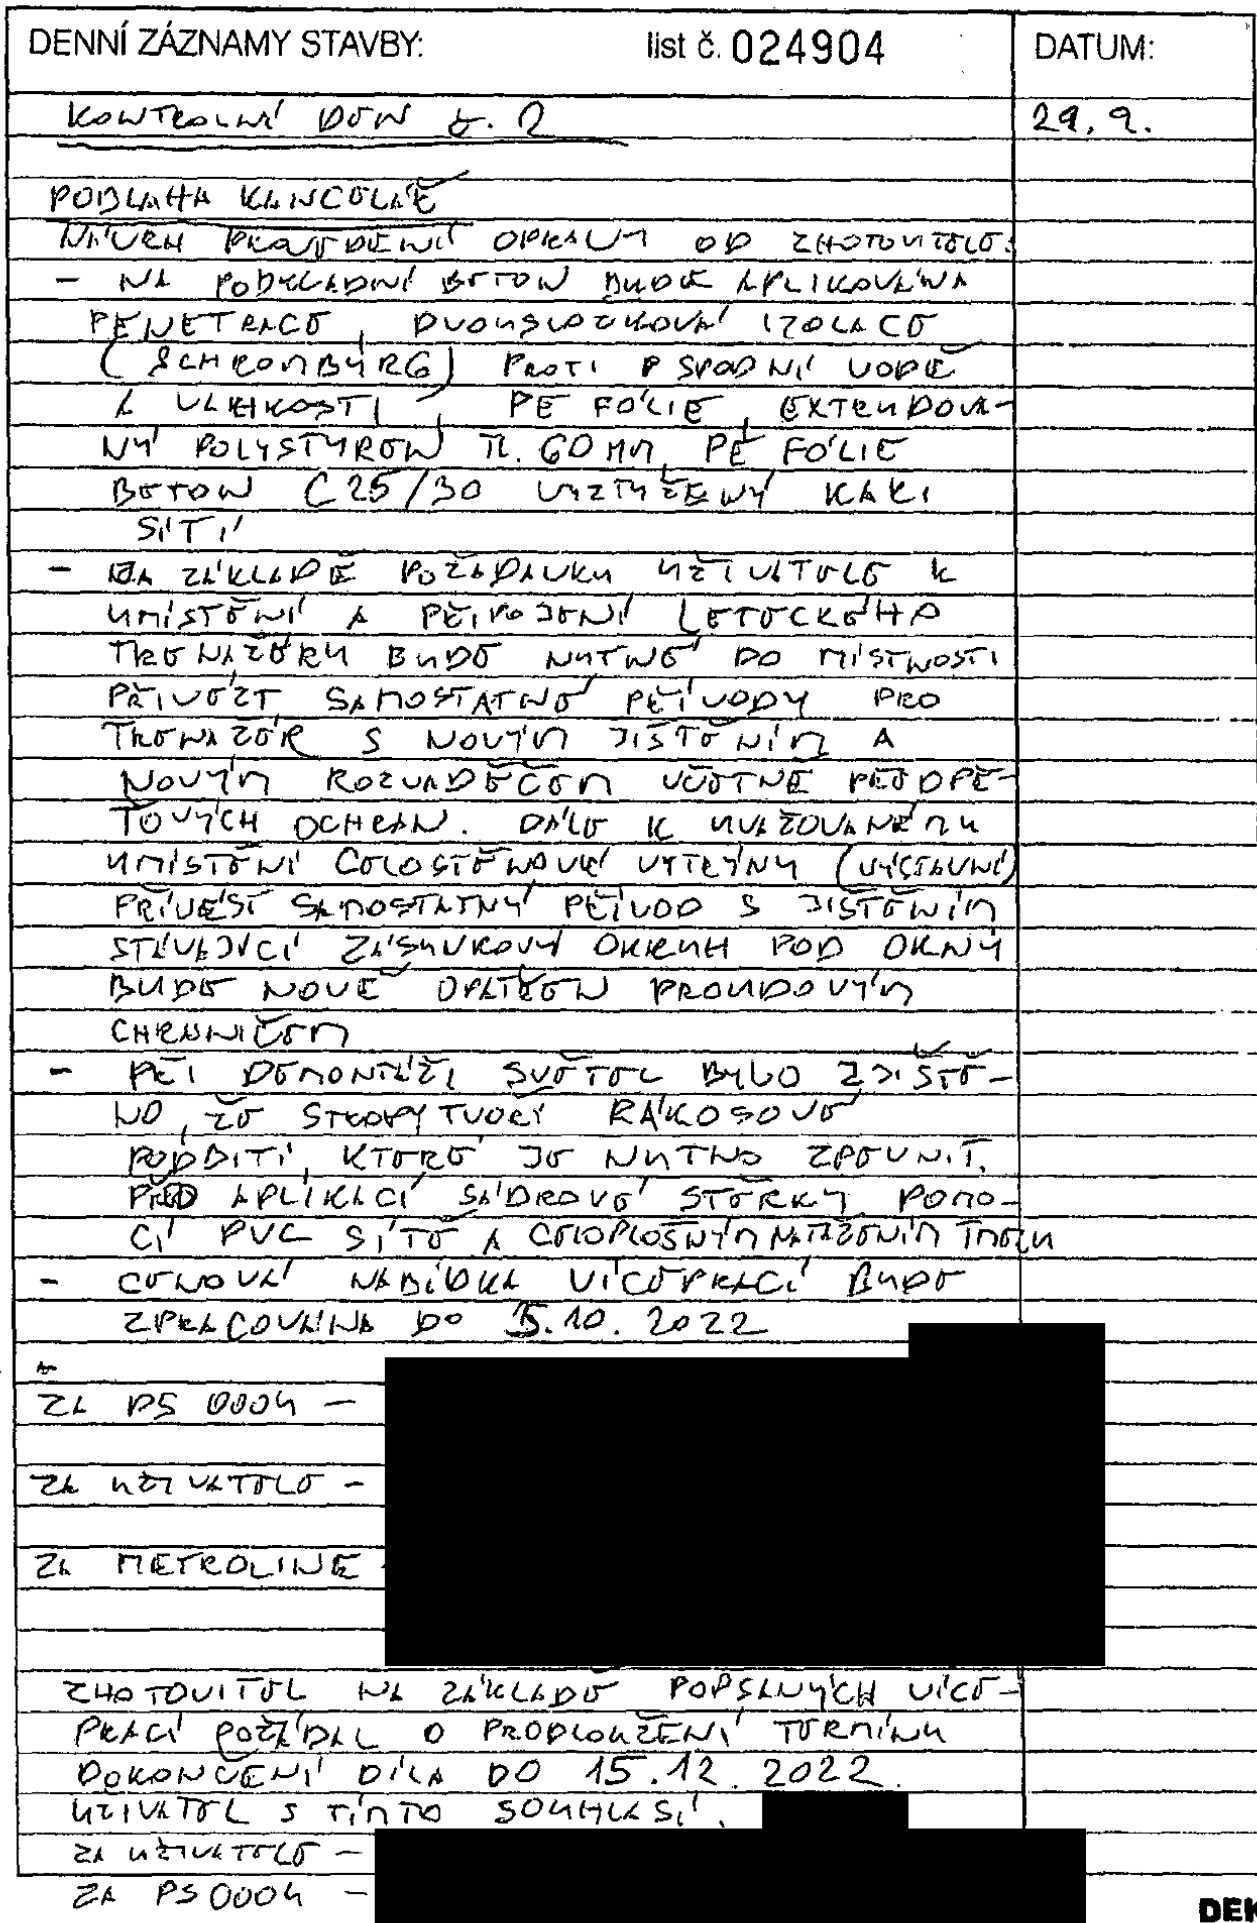 DENNÍ ZÁZNAMY STAVBY: list č. 024904 DATUM:
KONTROLNÍ DEN č. 2 29. 9.
PODLAHA KANCELÁŘ
NÁVRH PROVEDENÍ OPRAVY OD ZHOTOVITELE:
- NA PODKLADNÍ BETON BUDE APLIKOVÁNA
PENETRACE, DVOUSLOŽKOVÁ IZOLACE
(SCHROMBURG) PROTI P SPODNÍ VODĚ
A VLHKOSTI, PE FÓLIE, EXTRUDOVA-
NÝ POLYSTYREN TL. 60 MM, PE FÓLIE
BETON C25/30 VYZTUŽENÝ KARI
SÍTÍ
- NA ZÁKLADĚ POŽADAVKU UŽIVATELE K
UMÍSTĚNÍ A PŘIPOJENÍ LETECKÉHO
TRENAŽÉRU BUDE NUTNÉ DO MÍSTNOSTI
PŘIVÉZT SAMOSTATNÉ PŘÍVODY PRO
TRENAŽÉR S NOVÝM JIŠTĚNÍM A
NOVÝM ROZVADĚČEM VČETNĚ PŘEDPĚ-
ŤOVÝCH OCHRAN. DÁLE K UVAŽOVANÉMU
UMÍSTĚNÍ CELOSTĚNOVÉ VITRÍNY (VÝSTAVNÍ)
PŘIVÉST SAMOSTATNÝ PŘÍVOD S JIŠTĚNÍM
STÁVAJÍCÍ ZÁSUVKOVÝ OKRUH POD OKNY
BUDE NOVĚ OPATŘEN PROUDOVÝM
CHRÁNIČEM
- PŘI DEMONTÁŽI SVĚTEL BYLO ZJIŠTĚ-
NO, ŽE STROPY TVOŘÍ RÁKOSOVÉ
PODBITÍ, KTERÉ JE NUTNO ZPEVNIT.
PŘED APLIKACÍ SÁDROVÉ STĚRKY POMO-
CÍ PVC SÍTĚ A CELOPLOŠNÝM NATAŽENÍM TMELU
- CENOVÁ NABÍDKA VÍCEPRACÍ BUDE
ZPRACOVÁNA DO 5.10. 2022
ZA PS 0004 -
ZA UŽIVATELE -
ZA METROLINE -
ZHOTOVITEL NA ZÁKLADĚ POPSANÝCH VÍCE-
PRACÍ POŽÁDAL O PRODLOUŽENÍ TERMÍNU
DOKONČENÍ DÍLA DO 15.12.2022.
UŽIVATEL S TÍMTO SOUHLASÍ.
ZA UŽIVATELE -
ZA PS 0004 -
DEK